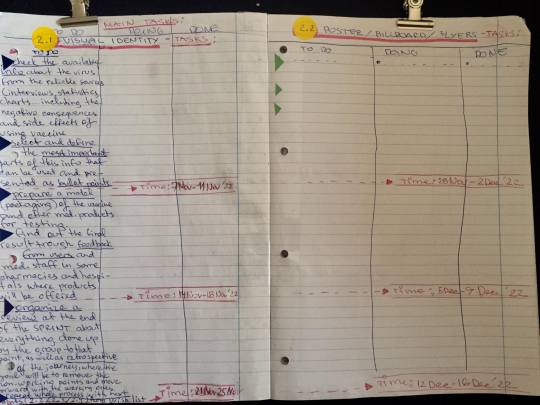 MAIN TASKS:
TO DO DOING DONE
2.1 VISUAL IDENTITY - TASKS:
TO DO
check the available
info about the virus
from the reliable sources
(interviews, statistics,
charts including the
negative consequences
and side effects of
using vaccine
select and define
the most important
parts of this info that
can be used and pre-
sented as bullet points
Time: 7Nov-11Nov '22
prepare a
(packaging) of the vaccine
and other med. products
for testing.
find out the final
result through feedback
from users and
med. staff in some
pharmacies and hospi-
tals where products
will be offered
Time: 14Nov-18Nov '22
organize a
review at the end
of the SPRINT about
everything done up
by the group to that
point, as well as retrospective
of the journey, where the
will be to remove the
non-working points and move
forward with the working ones
Time: 21Nov-25No
2.2 POSTER/BILLBOARD/FLYERS - TASKS:
TO DO DOING DONE
Time: 28Nov - 2Dec '22
Time: 5Dec-9Dec '22
Time: 12Dec-16Dec '22